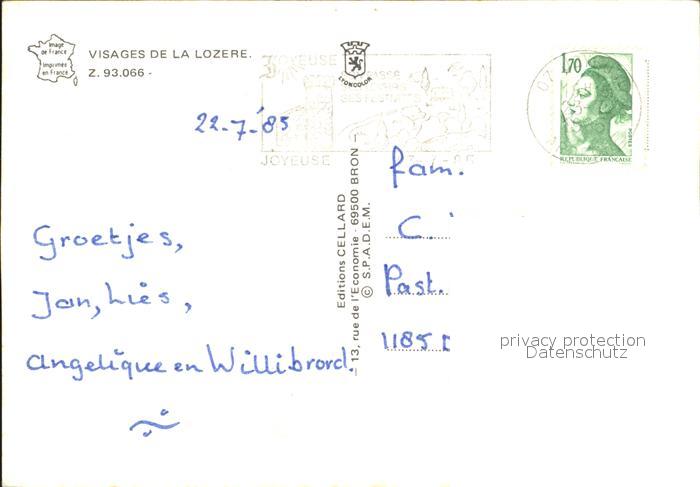 Image
de France
Imprimée
en France
VISAGES DE LA LOZERE.
Z. 93.066 -
JOYEUSE
LYONCOLOR
JOYEUSE
07
1,70
REPUBLIQUE FRANÇAISE
22-7-'85
Editions CELLARD
13, rue de l'Economie - 69500 BRON -
© S.P.A.D.E.M.
fam.
C.
Past.
1185
Groetjes,
Jan, Liès,
Angelique en Willibrord.
privacy protection
Datenschutz